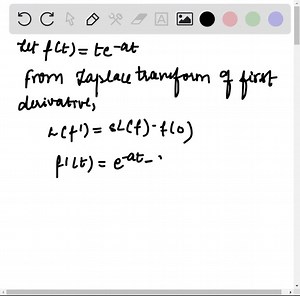 Let f(t) = te^-at
From Laplace transform of first
derivative,
L(f') = sL(f) - f(0)
f'(t) = e^-at -